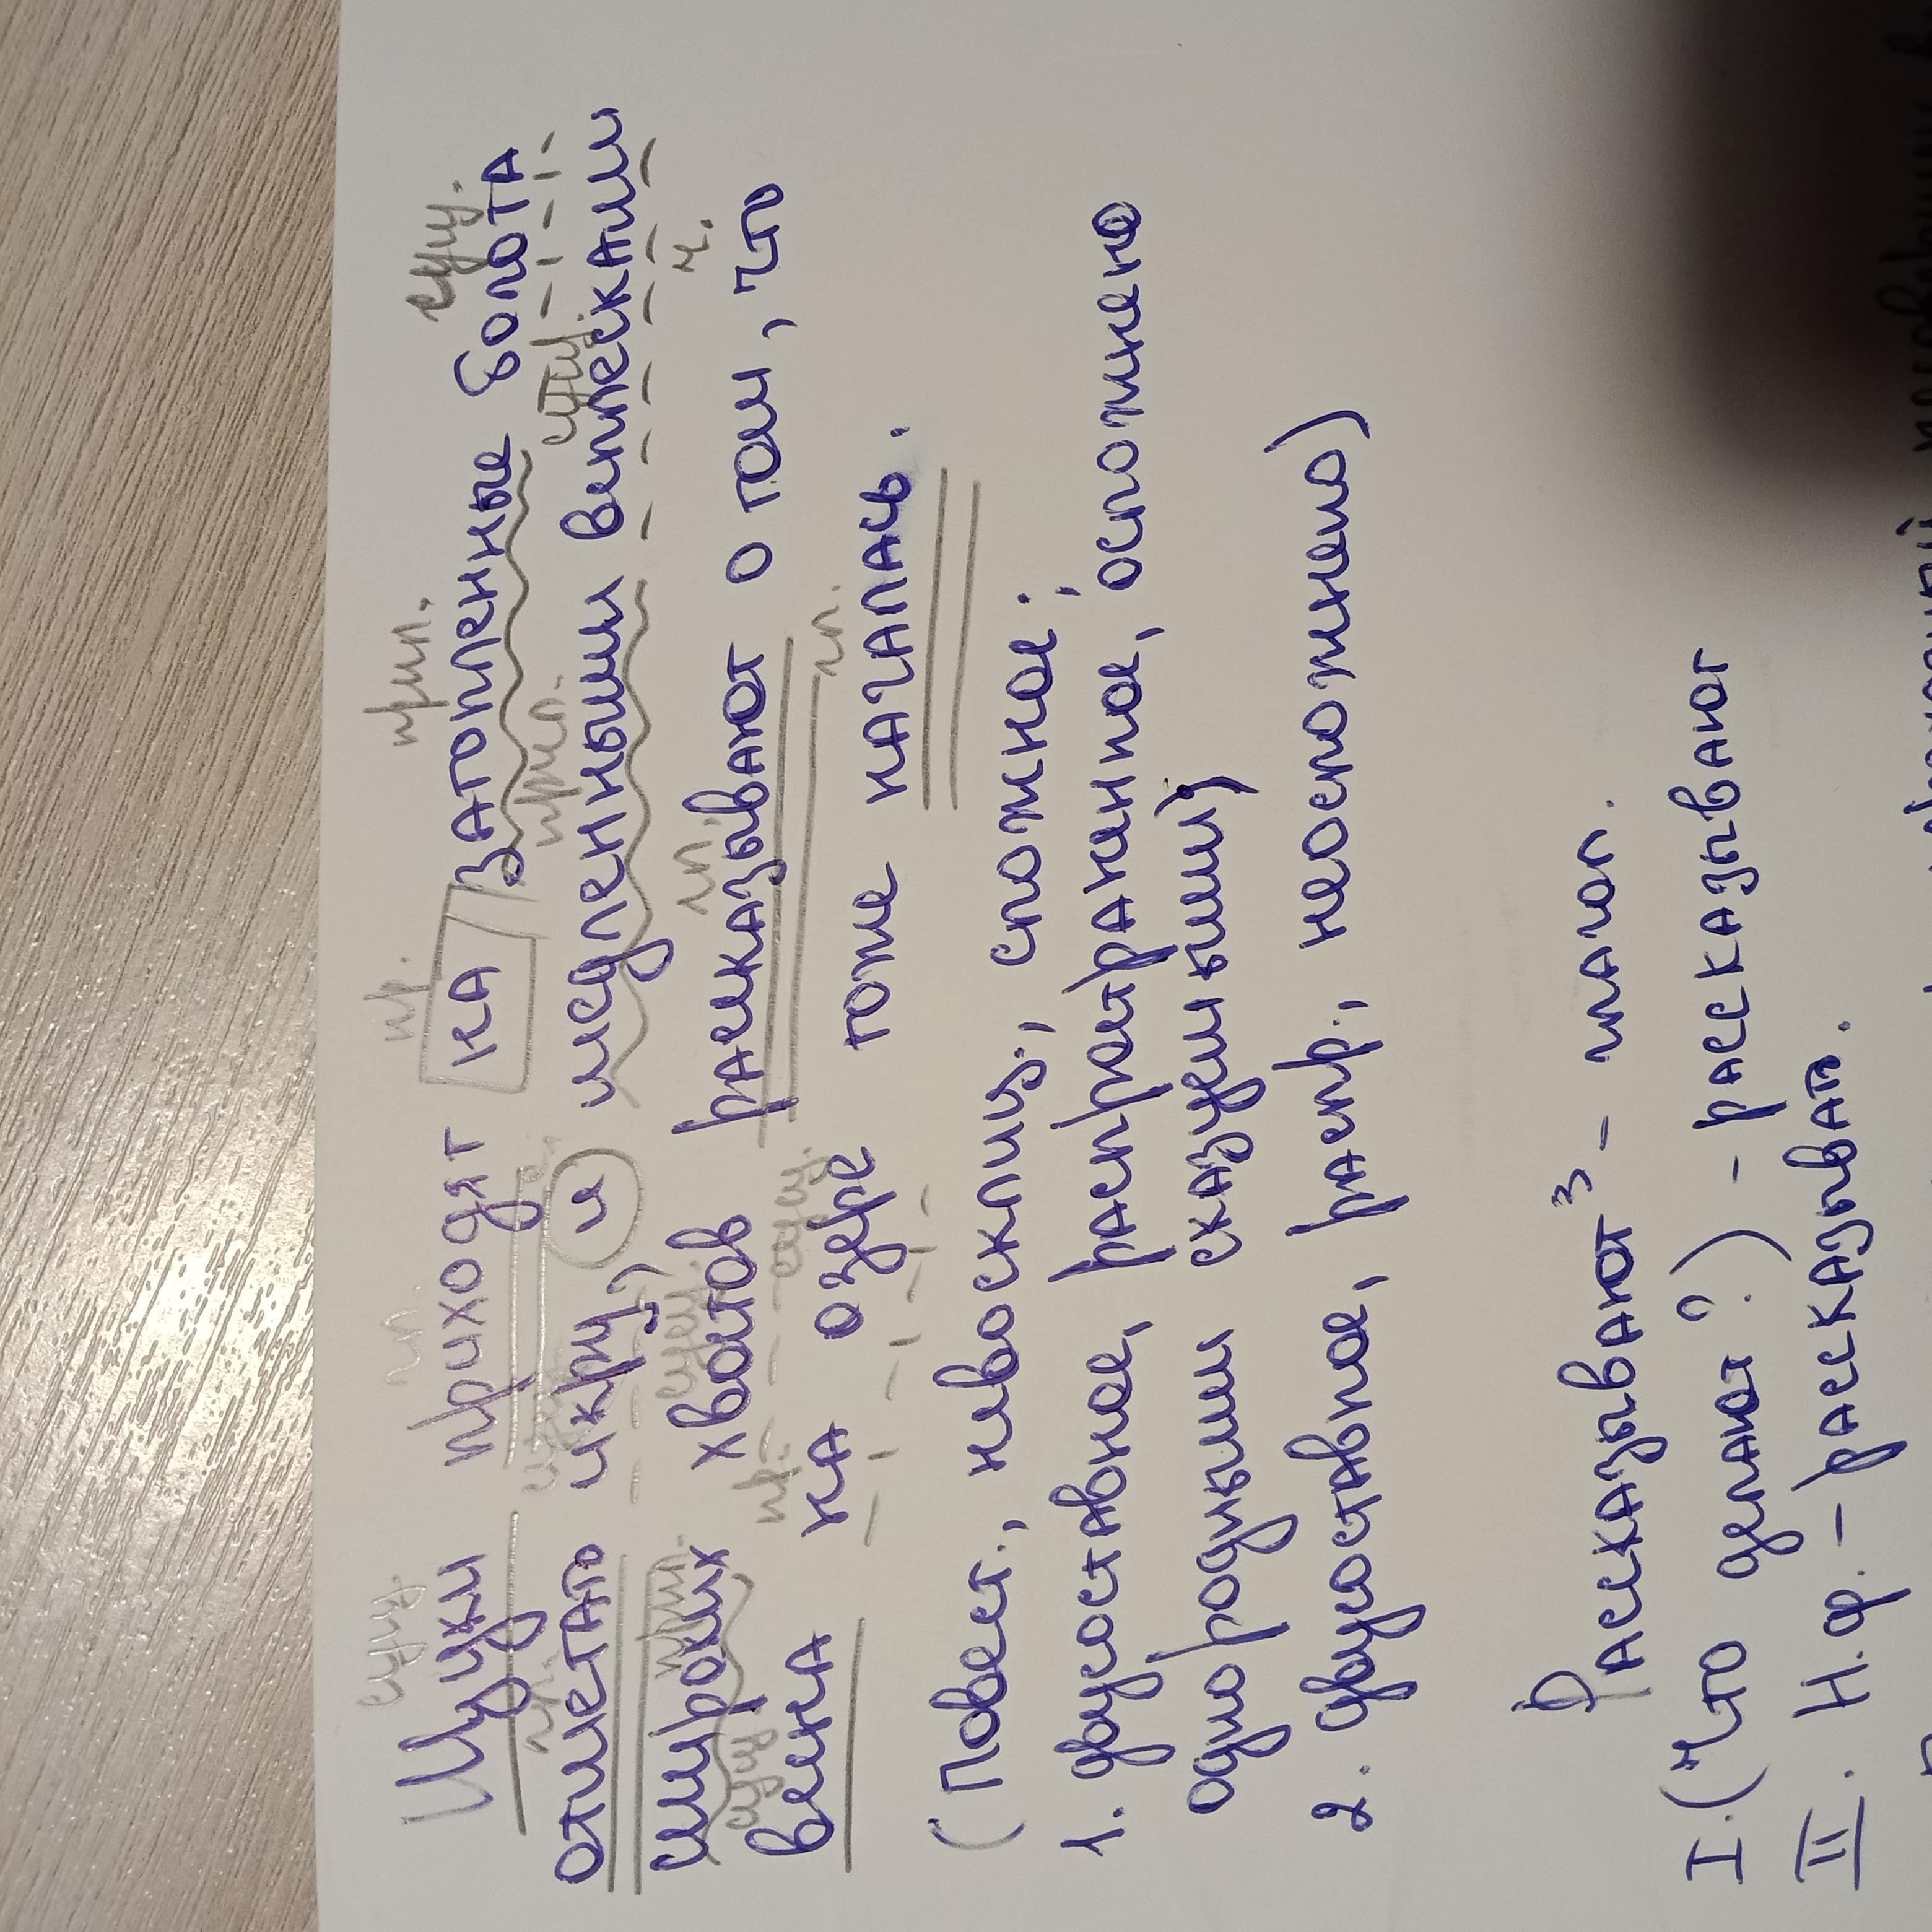 сущ. гл. пр. прил. сущ.
Щуки приходят на затопленные болота
гл. сущ. с. прил. сущ.
отметать икру, и медленными всплесками
прил. сущ. гл. м.
широких хвостов рассказывают о том, что
сущ. пр. сущ. гл.
весна на озере тоже началась.
(Повест., невосклиц., сложное:
1. двусоставное, распространенное, осложнено
однородными сказуемыми;
2. двусоставное, распр., неосложнено)
Рассказывают³ – глагол.
I. (Что делают?) – рассказывают
II. Н.ф. – рассказывать.